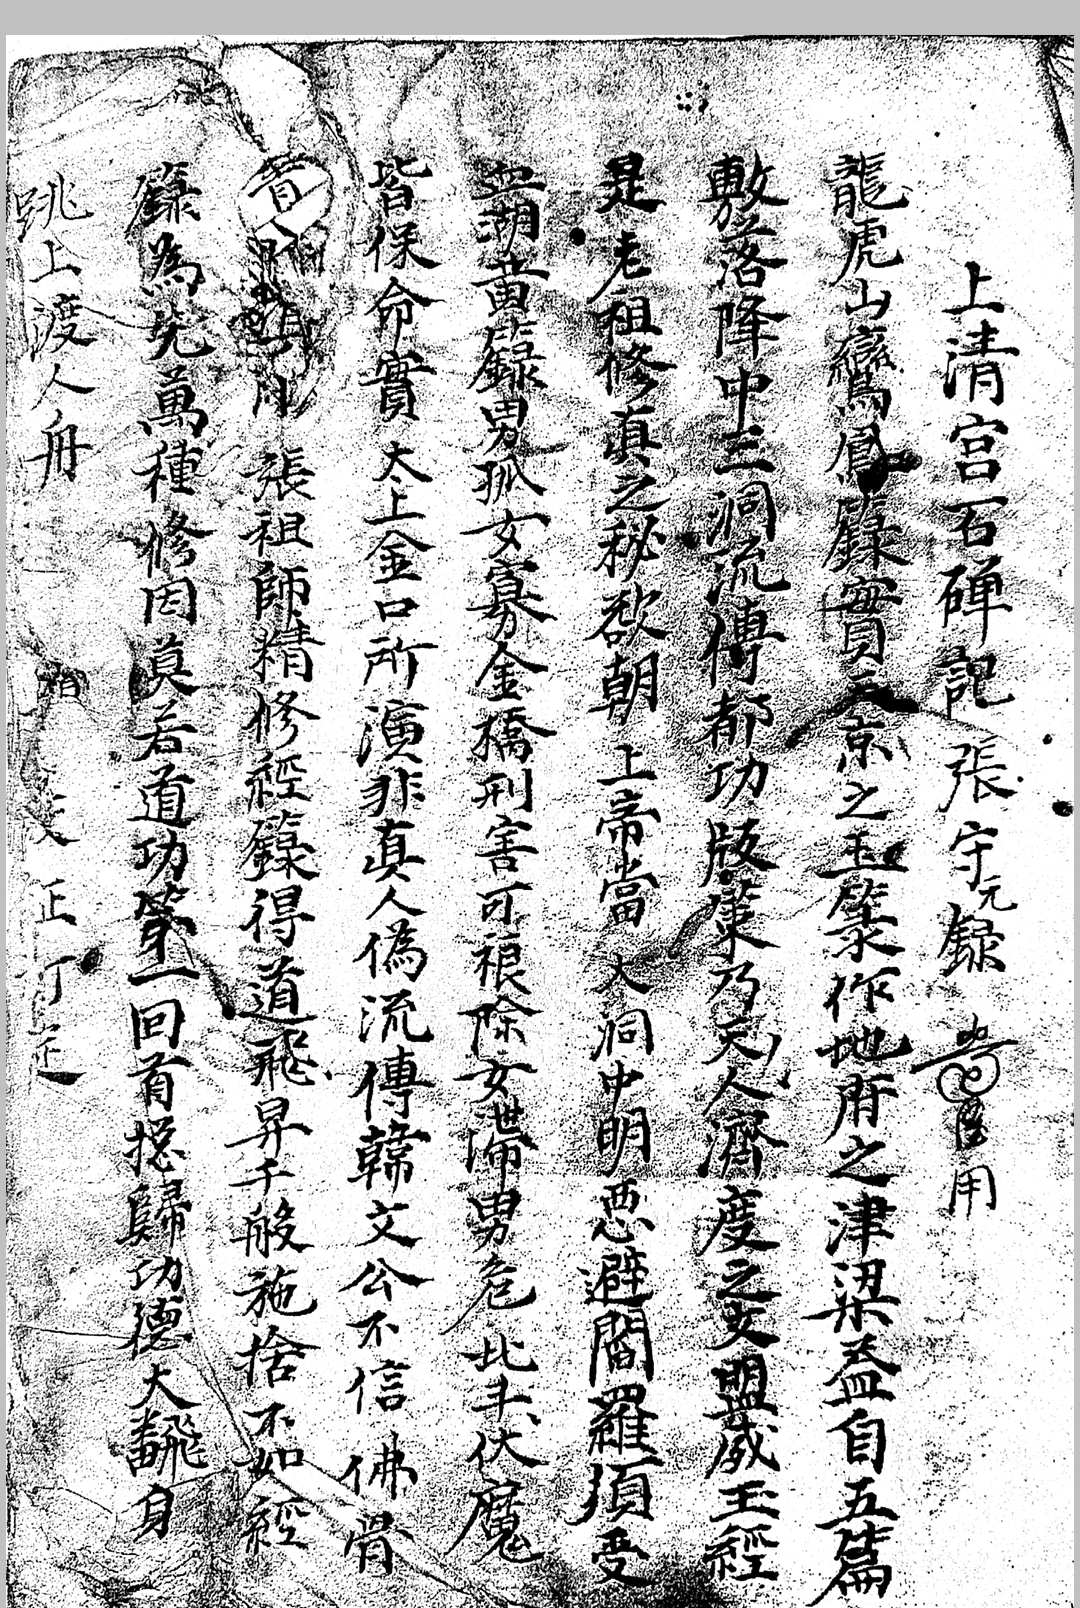 上清宮石碑記 張守元錄 用
龍虎山鸞鳳籙實天京之玉篆作地府之津梁蓋自五篇
敷落降中三洞流傳都功版策乃天人濟度之文盟威玉經
是老祖修真之秘欲朝上帝當大洞中明惡避閻羅須受
血湖黃籙男孤女寡金橋刑害可禳除女滯男危北斗伏魔
皆保命實太上金口所演非真人偽流傳韓文公不信佛骨
昔 張祖師精修經籙得道飛昇千般施捨不如經
籙為先萬種修因莫若道功第一回首揔歸功德大翻身
跳上渡人舟 正